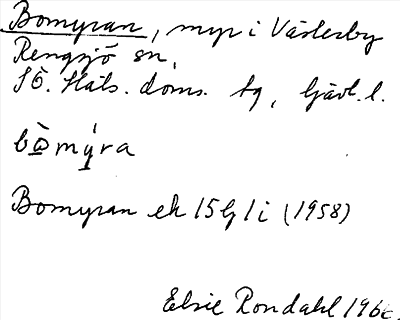 Bomyran, myr i Västerby
Rengsjö sn,
Sö. Häls. doms. tg, Gävl. l.
bòmýra
Bomyran ek 15G1i (1958)
Elsie Rondahl 196